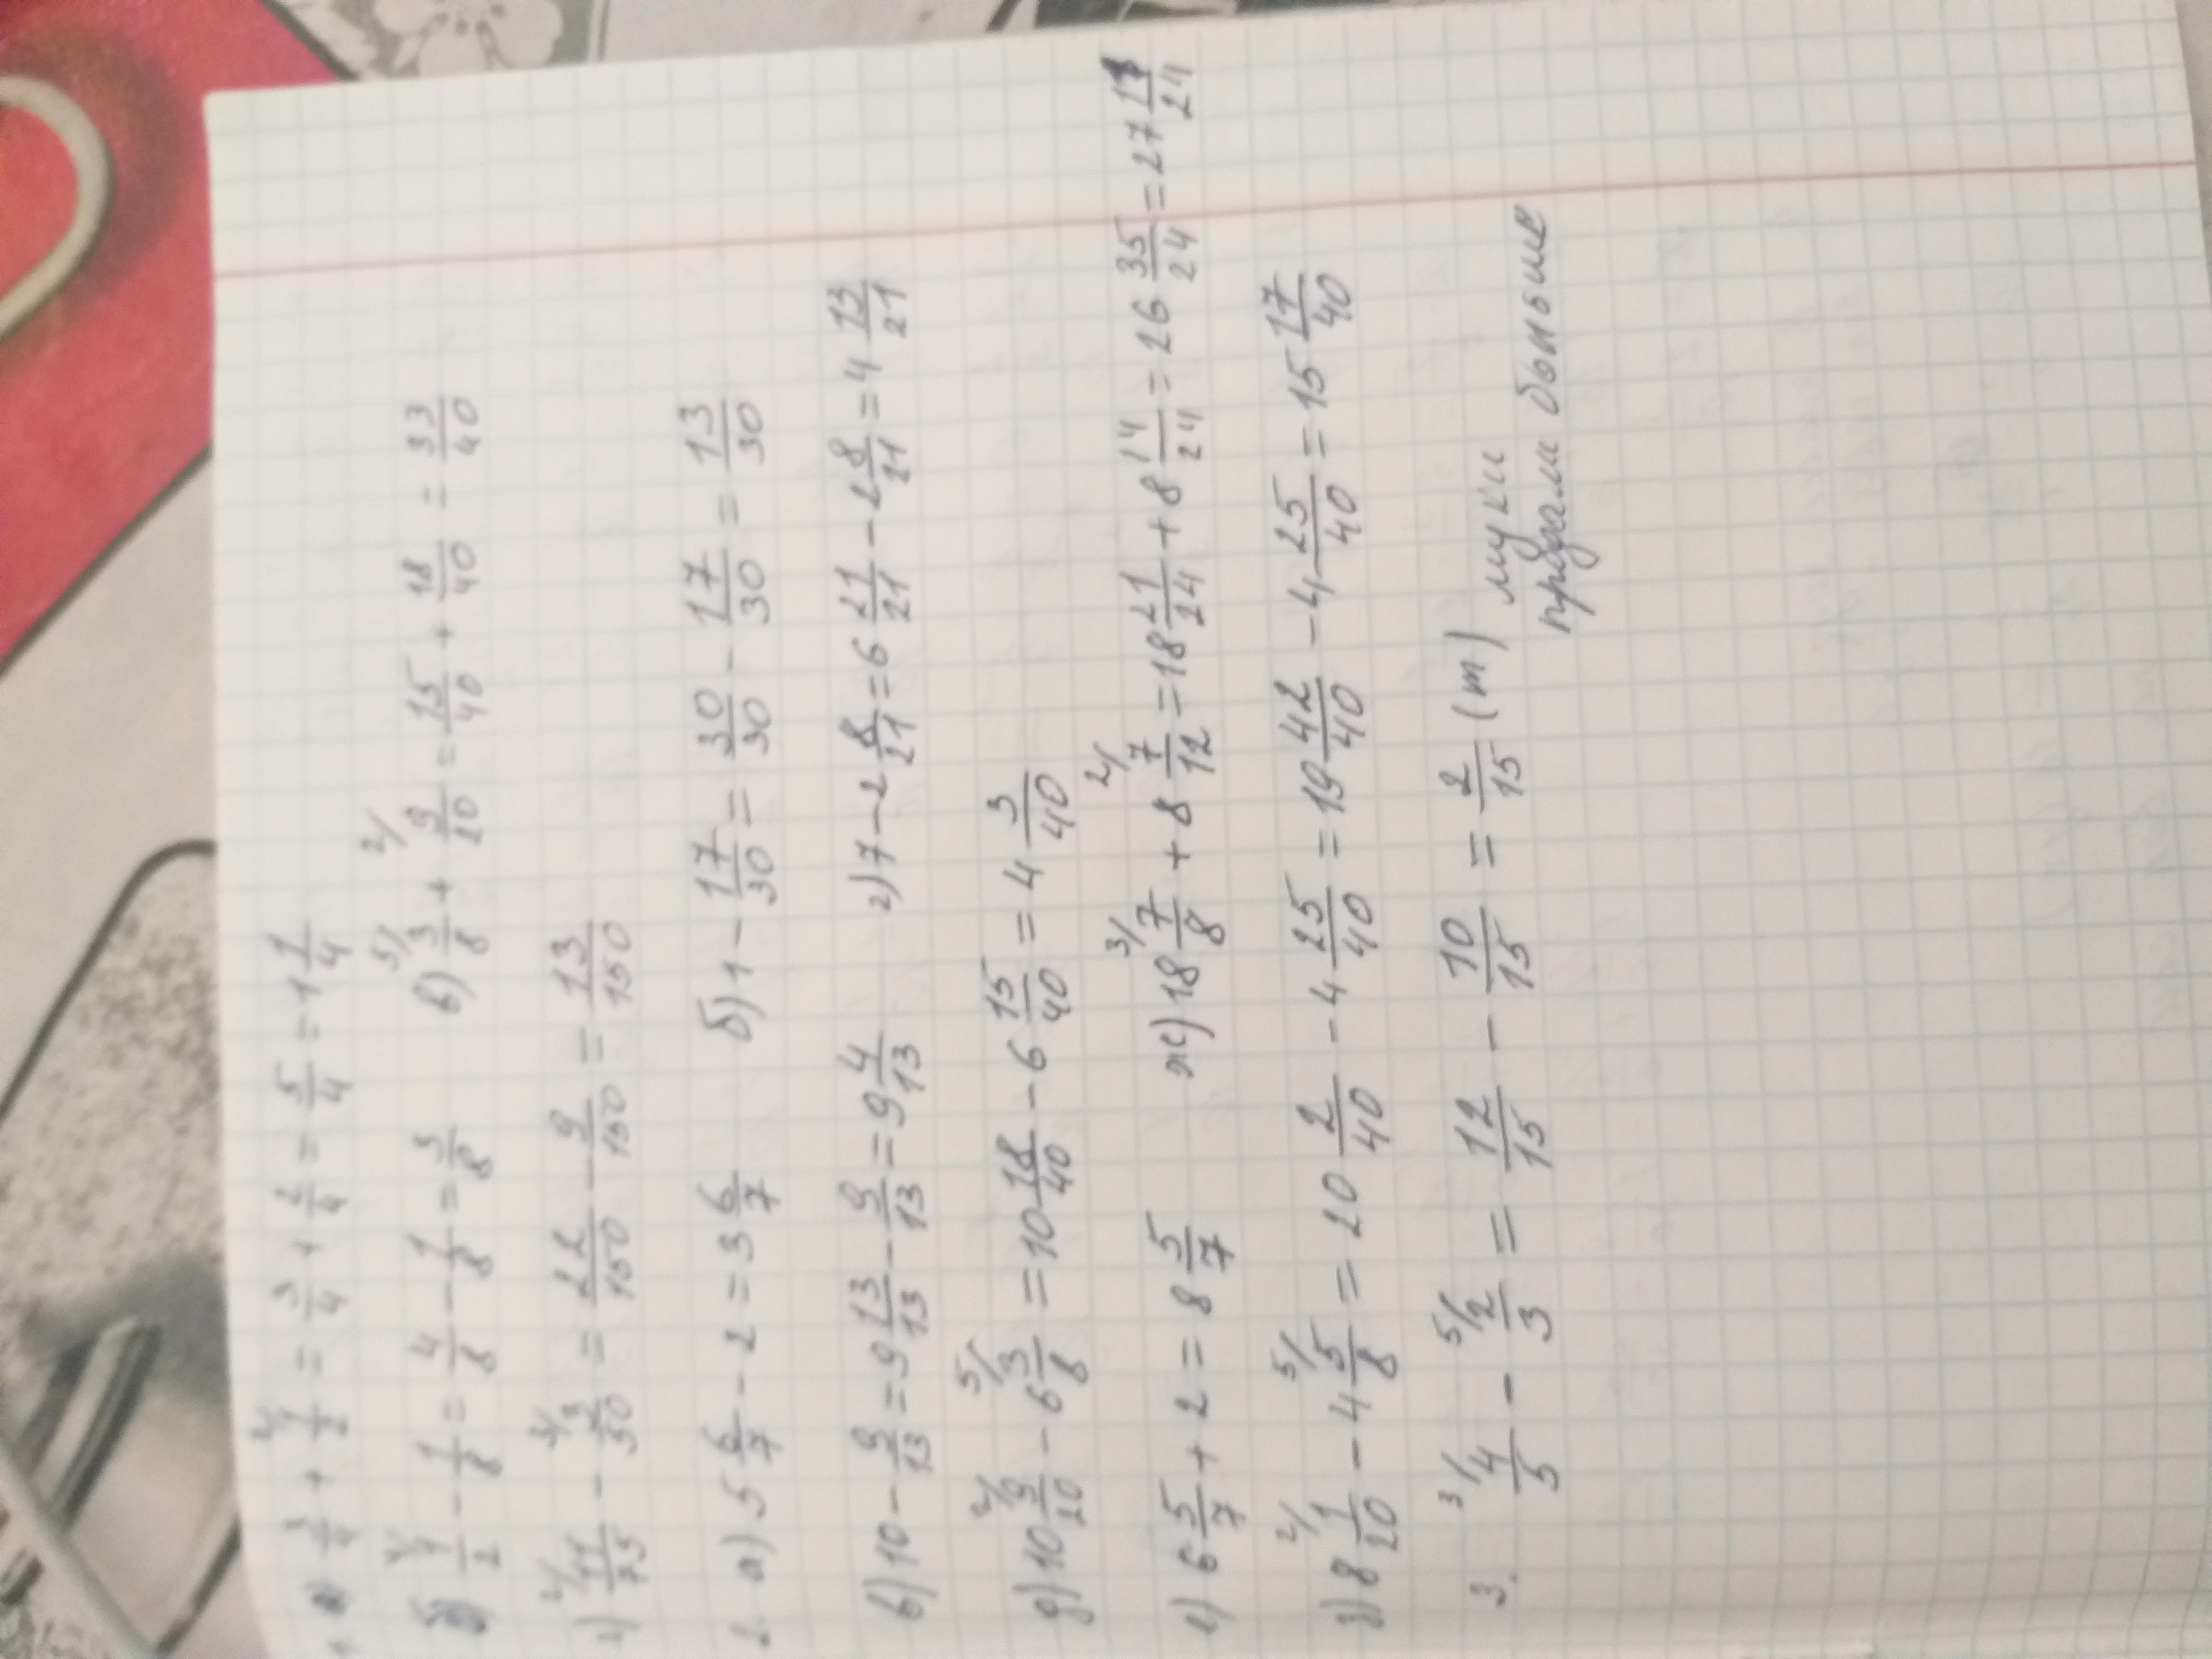 1. а) 3/4 + 2/ 1/2 = 3/4 + 2/4 = 5/4 = 1 1/4
б) 4/ 1/2 - 1/8 = 4/8 - 1/8 = 3/8 в) 5/ 3/8 + 2/ 9/20 = 15/40 + 18/40 = 33/40
г) 2/ 11/75 - 3/ 3/50 = 22/150 - 9/150 = 13/150
2. а) 5 6/7 - 2 = 3 6/7 б) 1 - 17/30 = 30/30 - 17/30 = 13/30
в) 10 - 9/13 = 9 13/13 - 9/13 = 9 4/13 г) 7 - 2 8/21 = 6 21/21 - 2 8/21 = 4 13/21
д) 10 2/ 9/20 - 6 5/ 3/8 = 10 18/40 - 6 15/40 = 4 3/40
е) 6 5/7 + 2 = 8 5/7 ж) 18 3/ 7/8 + 8 2/ 7/12 = 18 21/24 + 8 14/24 = 26 35/24 = 27 11/24
з) 8 2/ 1/20 - 4 5/ 5/8 = 20 2/40 - 4 25/40 = 19 42/40 - 4 25/40 = 15 17/40
3. 3/ 4/5 - 5/ 2/3 = 12/15 - 10/15 = 2/15 (т) муки
продали больше